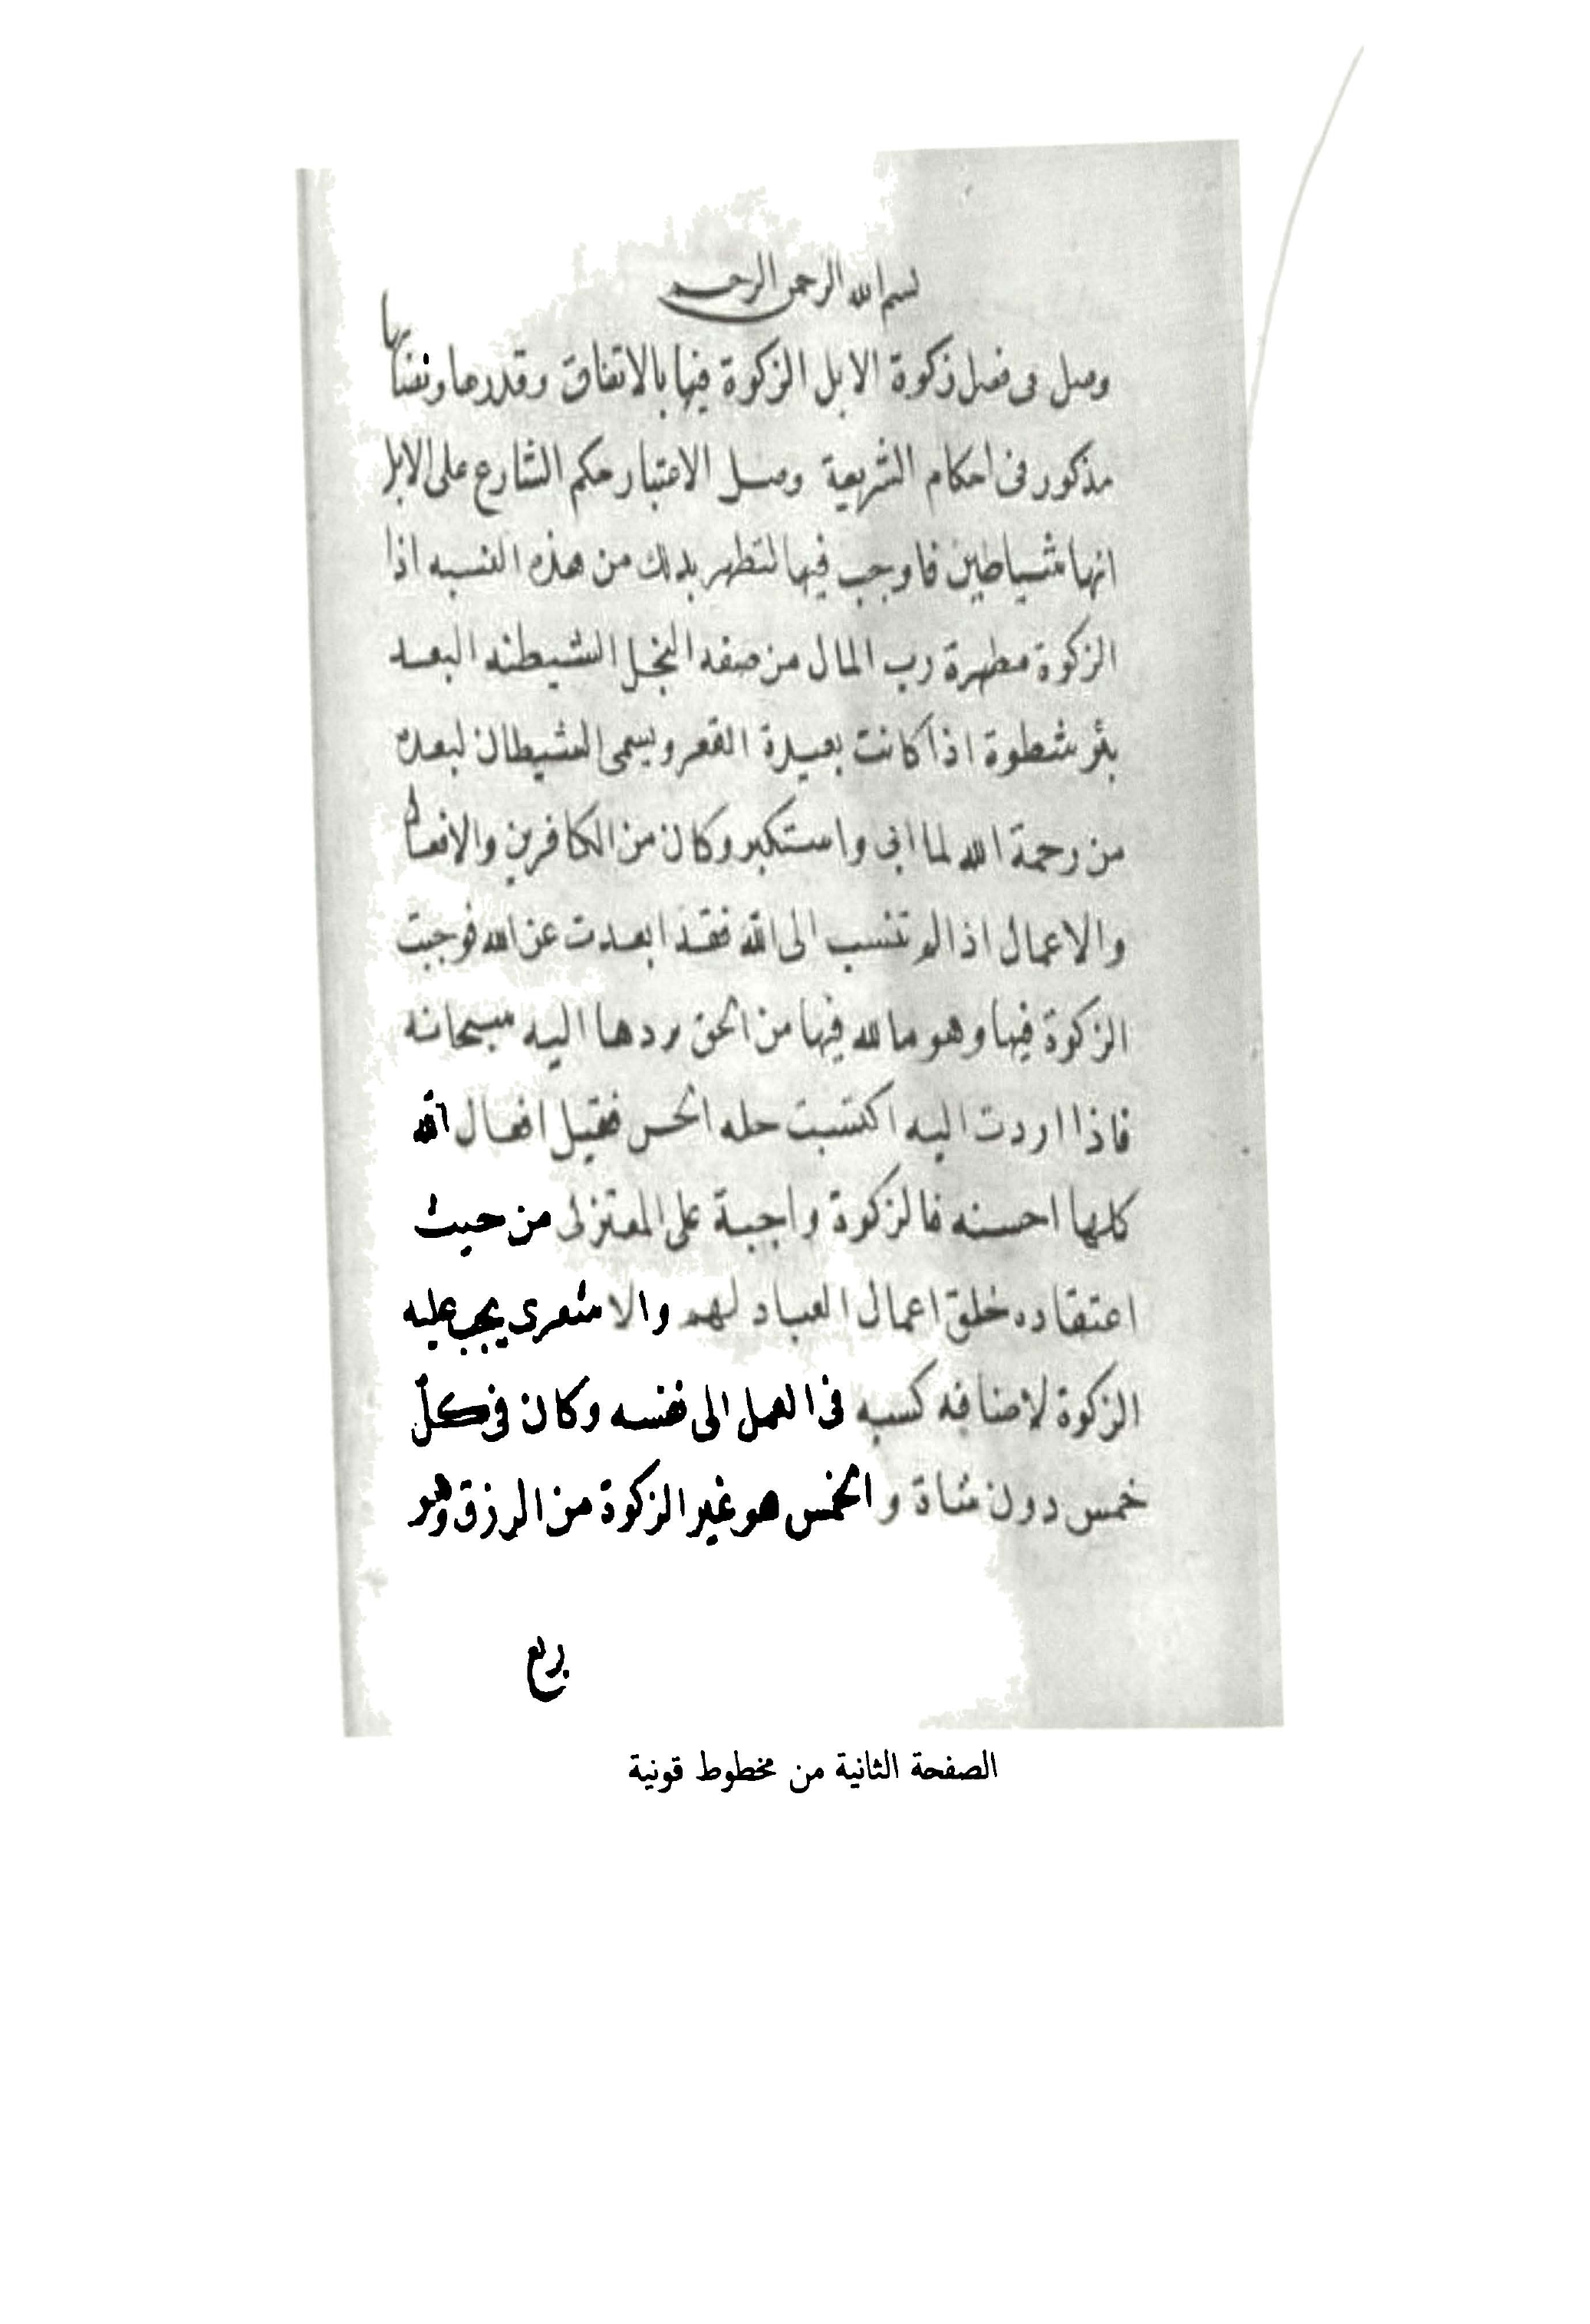 بسم الله الرحمن الرحيم
وصل فى فصل زكوة الابل الزكوة فيها بالاتفاق وقدرها ونصابها
مذكور فى احكام الشريعة وصل الاعتبار حكم الشارع على الابل
انها شياطين فاوجب فيها لتطهر بذلك من هذه النسبه اذا
الزكوة مطهرة رب المال من صفه البخل الشيطنه البعد
بئر شطوة اذا كانت بعيدة القعر ويسمى الشيطان لبعده
من رحمة الله لما ابى واستكبر وكان من الكافرين والافعال
والاعمال اذا لم تنسب الى الله فقد ابعدت عن الله فوجبت
الزكوة فيها وهو ما لله فيها من الحق بردها اليه سبحانه
فاذا اردت اليه اكتسبت حله الحسن فقيل افعال الله
كلها احسنه فالزكوة واجبة على المعتزلى من حيث
اعتقاده خلق اعمال العباد لهم والاشعرى يجب عليه
الزكوة لاضافه كسبه فى العمل الى نفسه وكان فى كلّ
خمس دون شاة والخمس هو غير الزكوة من الرزق وهو
ربع
الصفحة الثانية من مخطوط قونية